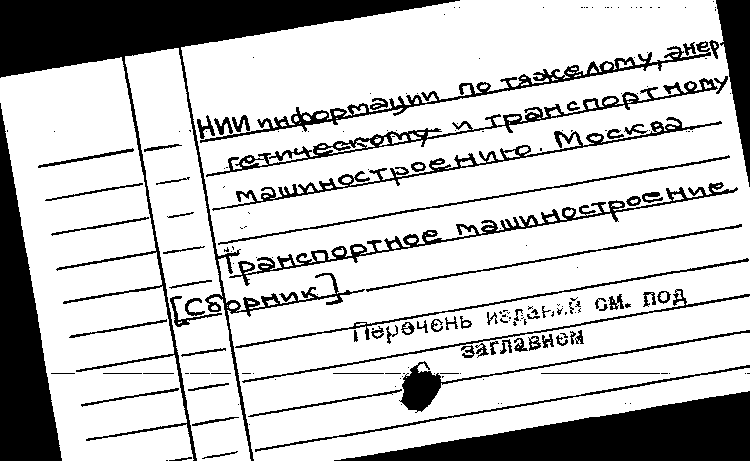 НИИ информации по тяжелому, энер-
гетическому и транспортному
машиностроению. Москва
Транспортное машиностроение
[Сборник].
Перечень изданий см. под
заглавием